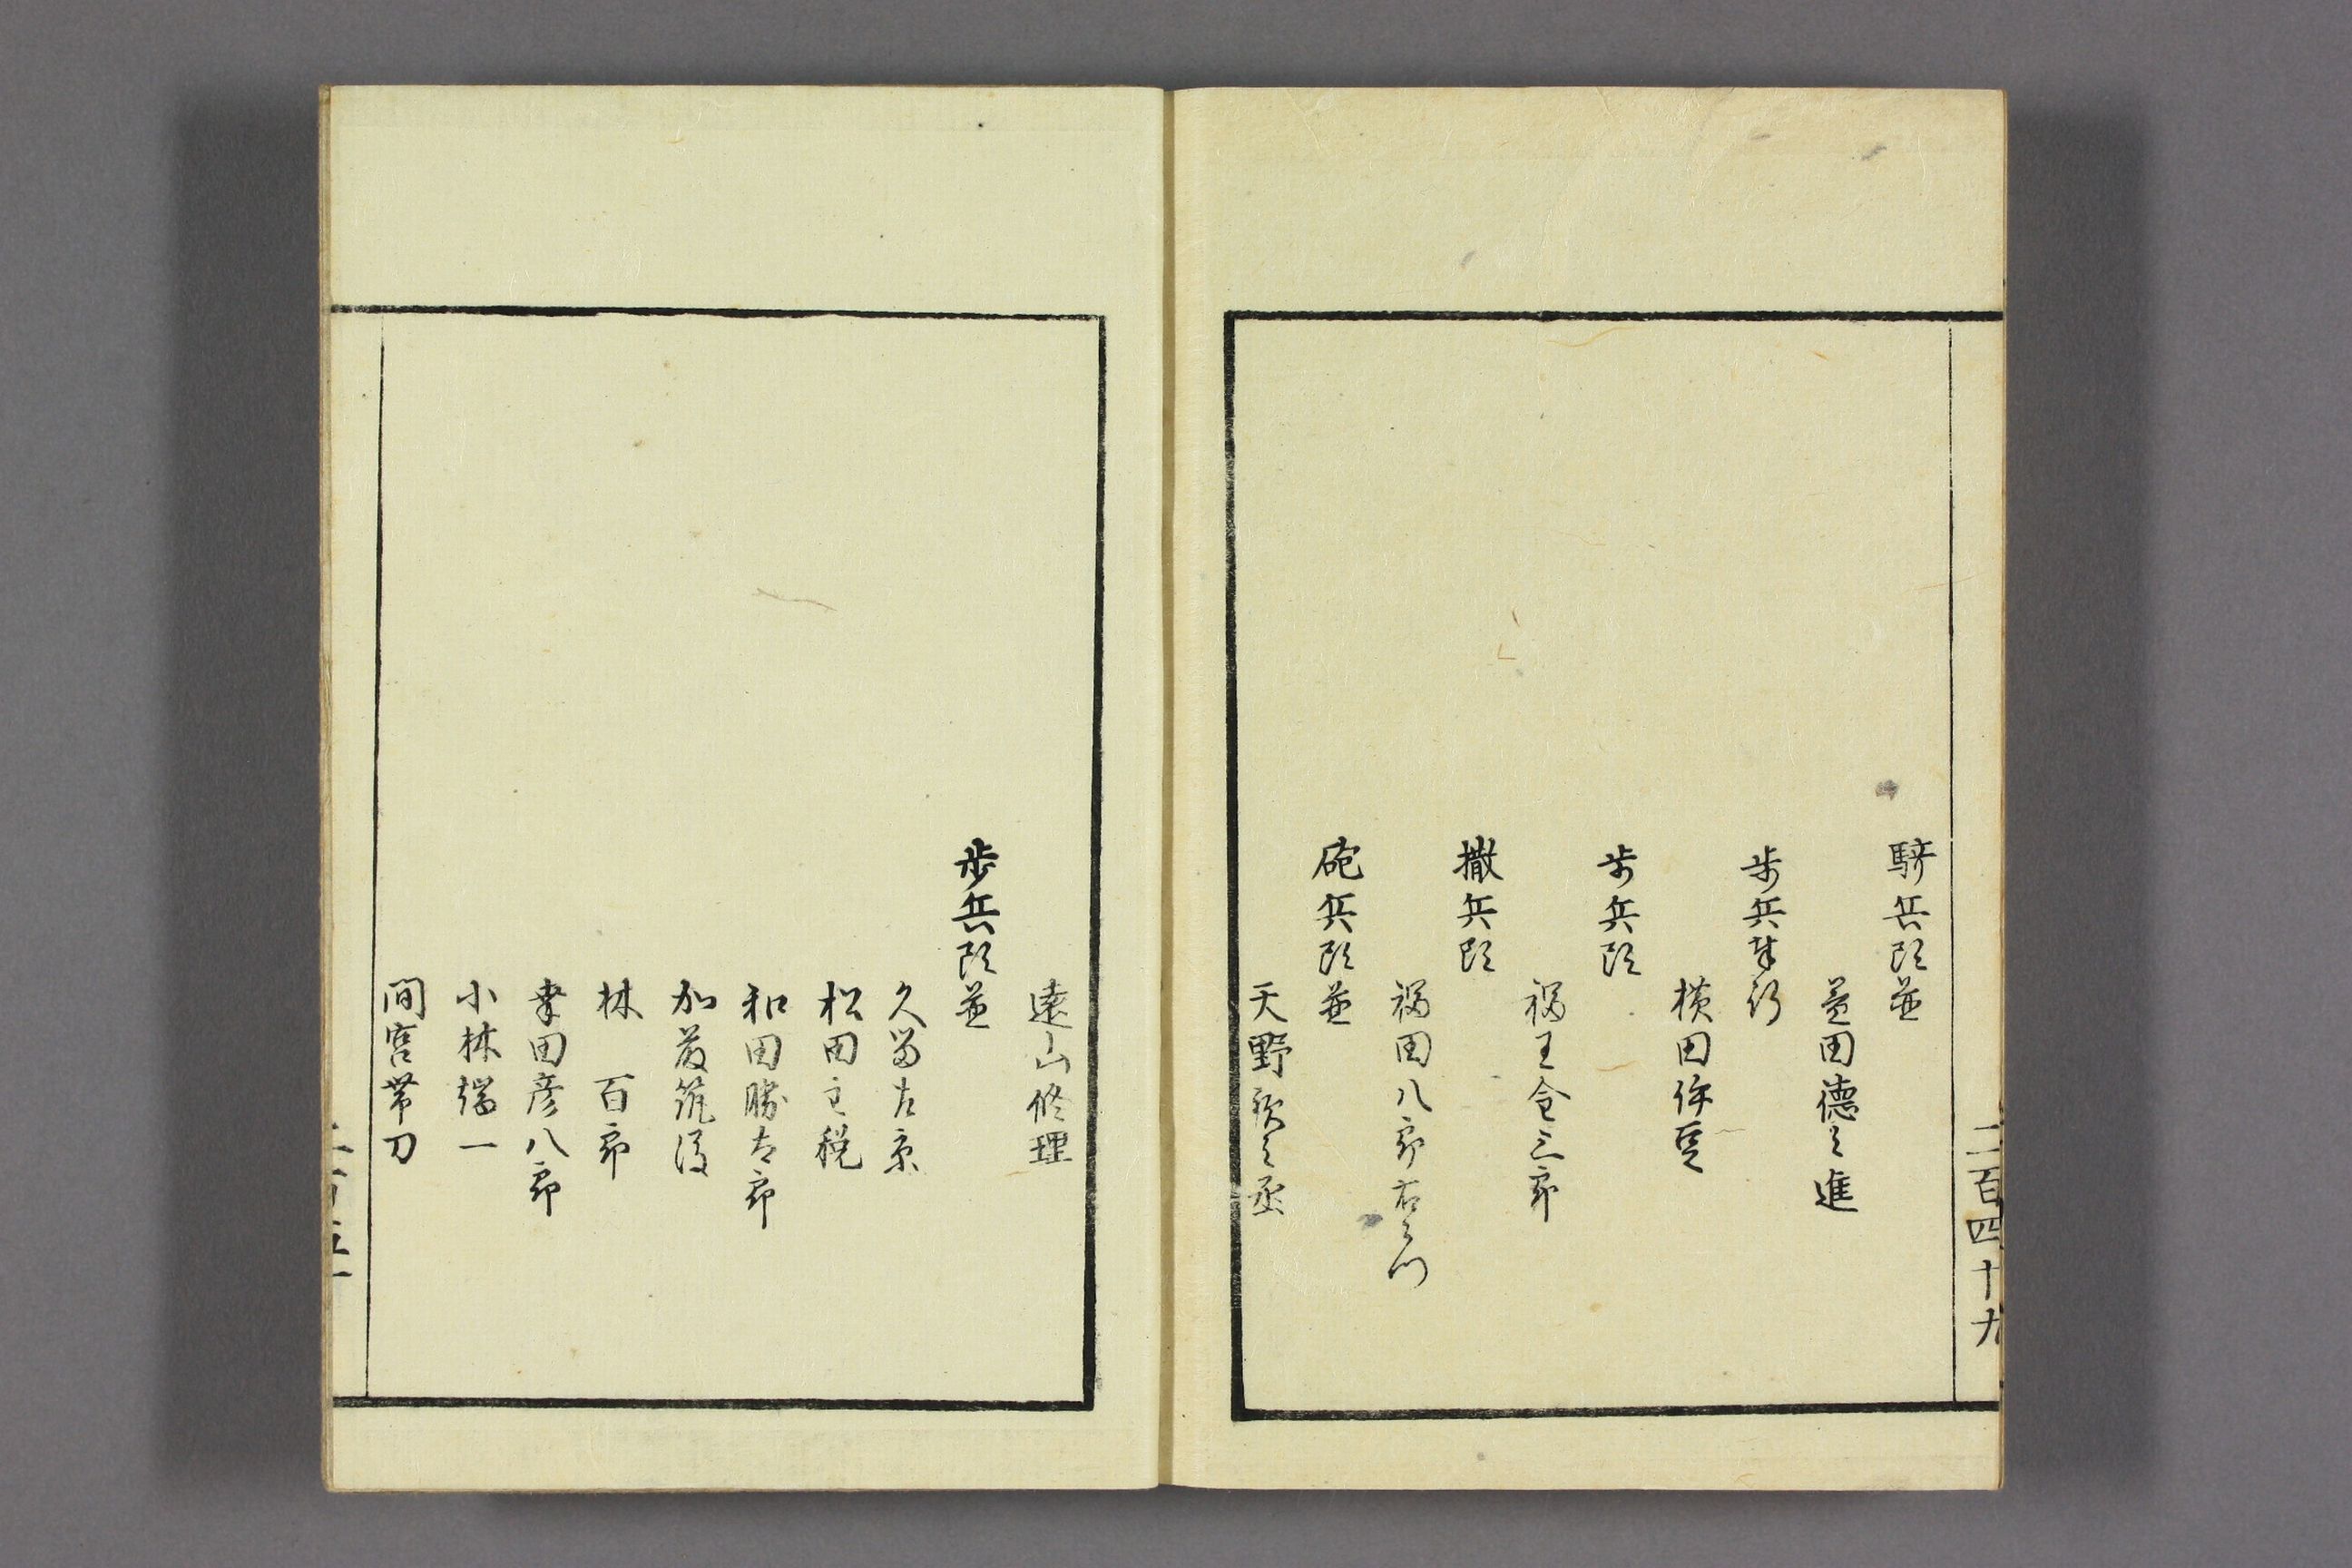 二百四十九
騎兵頭並
益田德之進
歩兵奉行
横田伊豆
歩兵頭
福王金三郎
撒兵頭
福田八郎右衛門
砲兵頭並
天野釟之丞
遠山修理
歩兵頭並
久留左京
松田主税
和田勝太郎
加藤筑後
林百郎
幸田彦八郎
小林端一
間宮帯刀